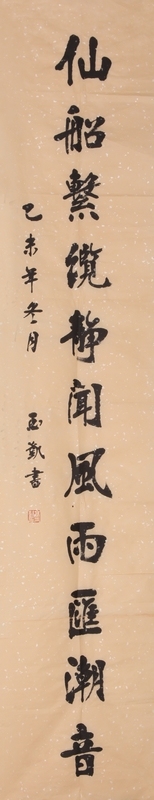 仙船繫纜静聞風雨匯潮音
乙未年冬月 玉凱書